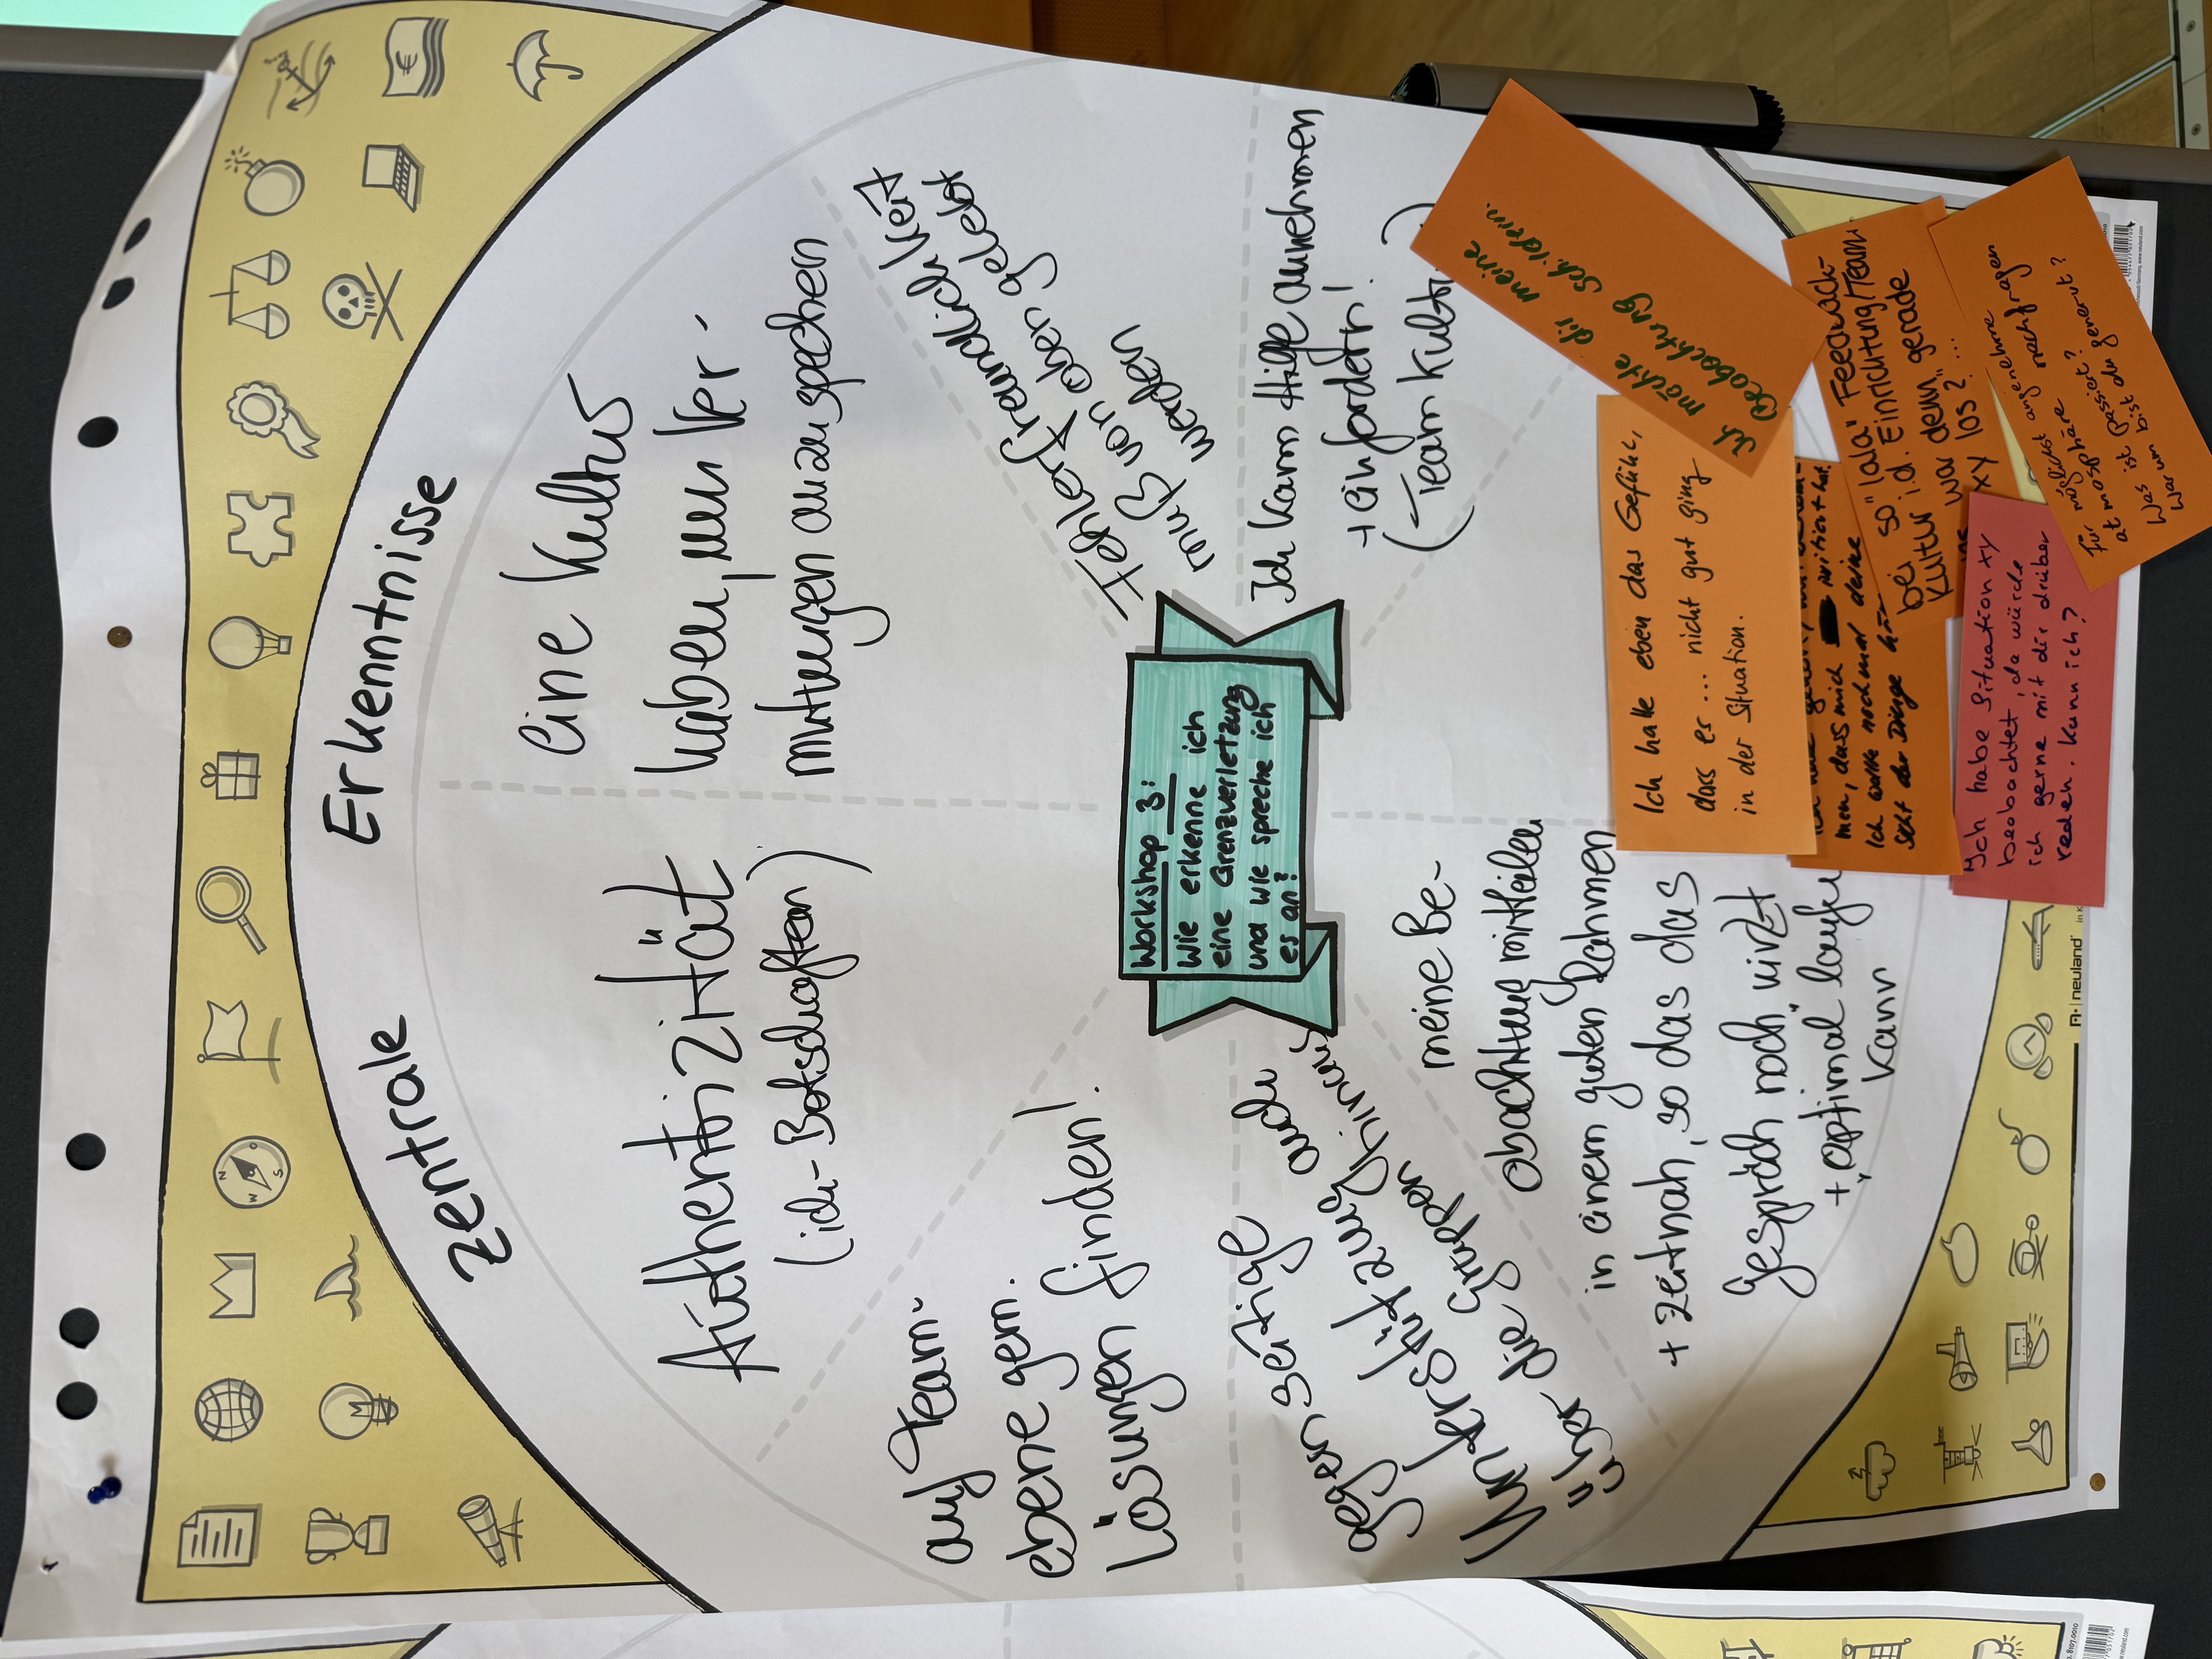 Zentrale Erkenntnisse
Authentizität
(ich-Botschaften)
Eine Kultur
haben, um Ver-
mutungen anzusprechen
Fehlerfreundlichkeit
muß von oben gelebt
werden
Ich kann Hilfe annehmen
+ einfordern!
(Team Kultur)
auf Team-
ebene gem.
Lösungen finden!
gegenseitige
Unterstützung auch
über die Gruppen
hinaus
Workshop 3:
Wie erkenne ich
eine Grenzverletzung
und wie spreche ich
es an?
meine Be-
obachtung mitteilen
in einem guten Rahmen
+ zeitnah, so das das
Gespräch noch wirkt
+ optimal laufen
kann
Ich möchte dir meine
Beobachtung schildern.
Ich hatte eben das Gefühl,
dass es ... nicht gut ging
in der Situation.
men, dass mich irritiert hat.
Ich wollte nochmal deine
Sicht der Dinge
bei so "lala" Feedback-
Kultur i.d. Einrichtung/Team:
war denn gerade
xy los? ...
Für möglichst angenehme
atmosphäre nachfragen
Was ist passiert?
Warum bist du genervt?
Ich habe Situation xy
beobachtet, da würde
ich gerne mit dir drüber
reden. Kann ich?
neuland